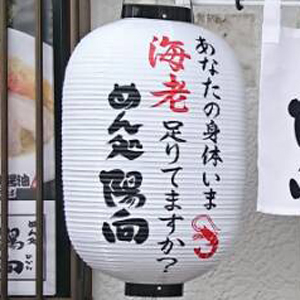 あなたの身体いま
海老足りてますか?
めん処 陽向
めん処
陽向